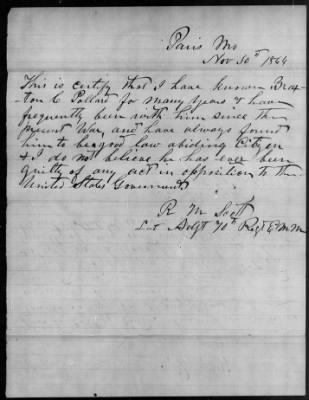 Paris Mo
Nov 30th 1864
This is certify that I have known Brax-
ton C Pollard for many years & have
frequently been with him since the
present War, and have always found
him to be a good law abiding Citizen
& I do not believe he has ever been
guilty of any act in opposition to the
United States Government
R M Scott
Lut Adjt 70th Regt E M M